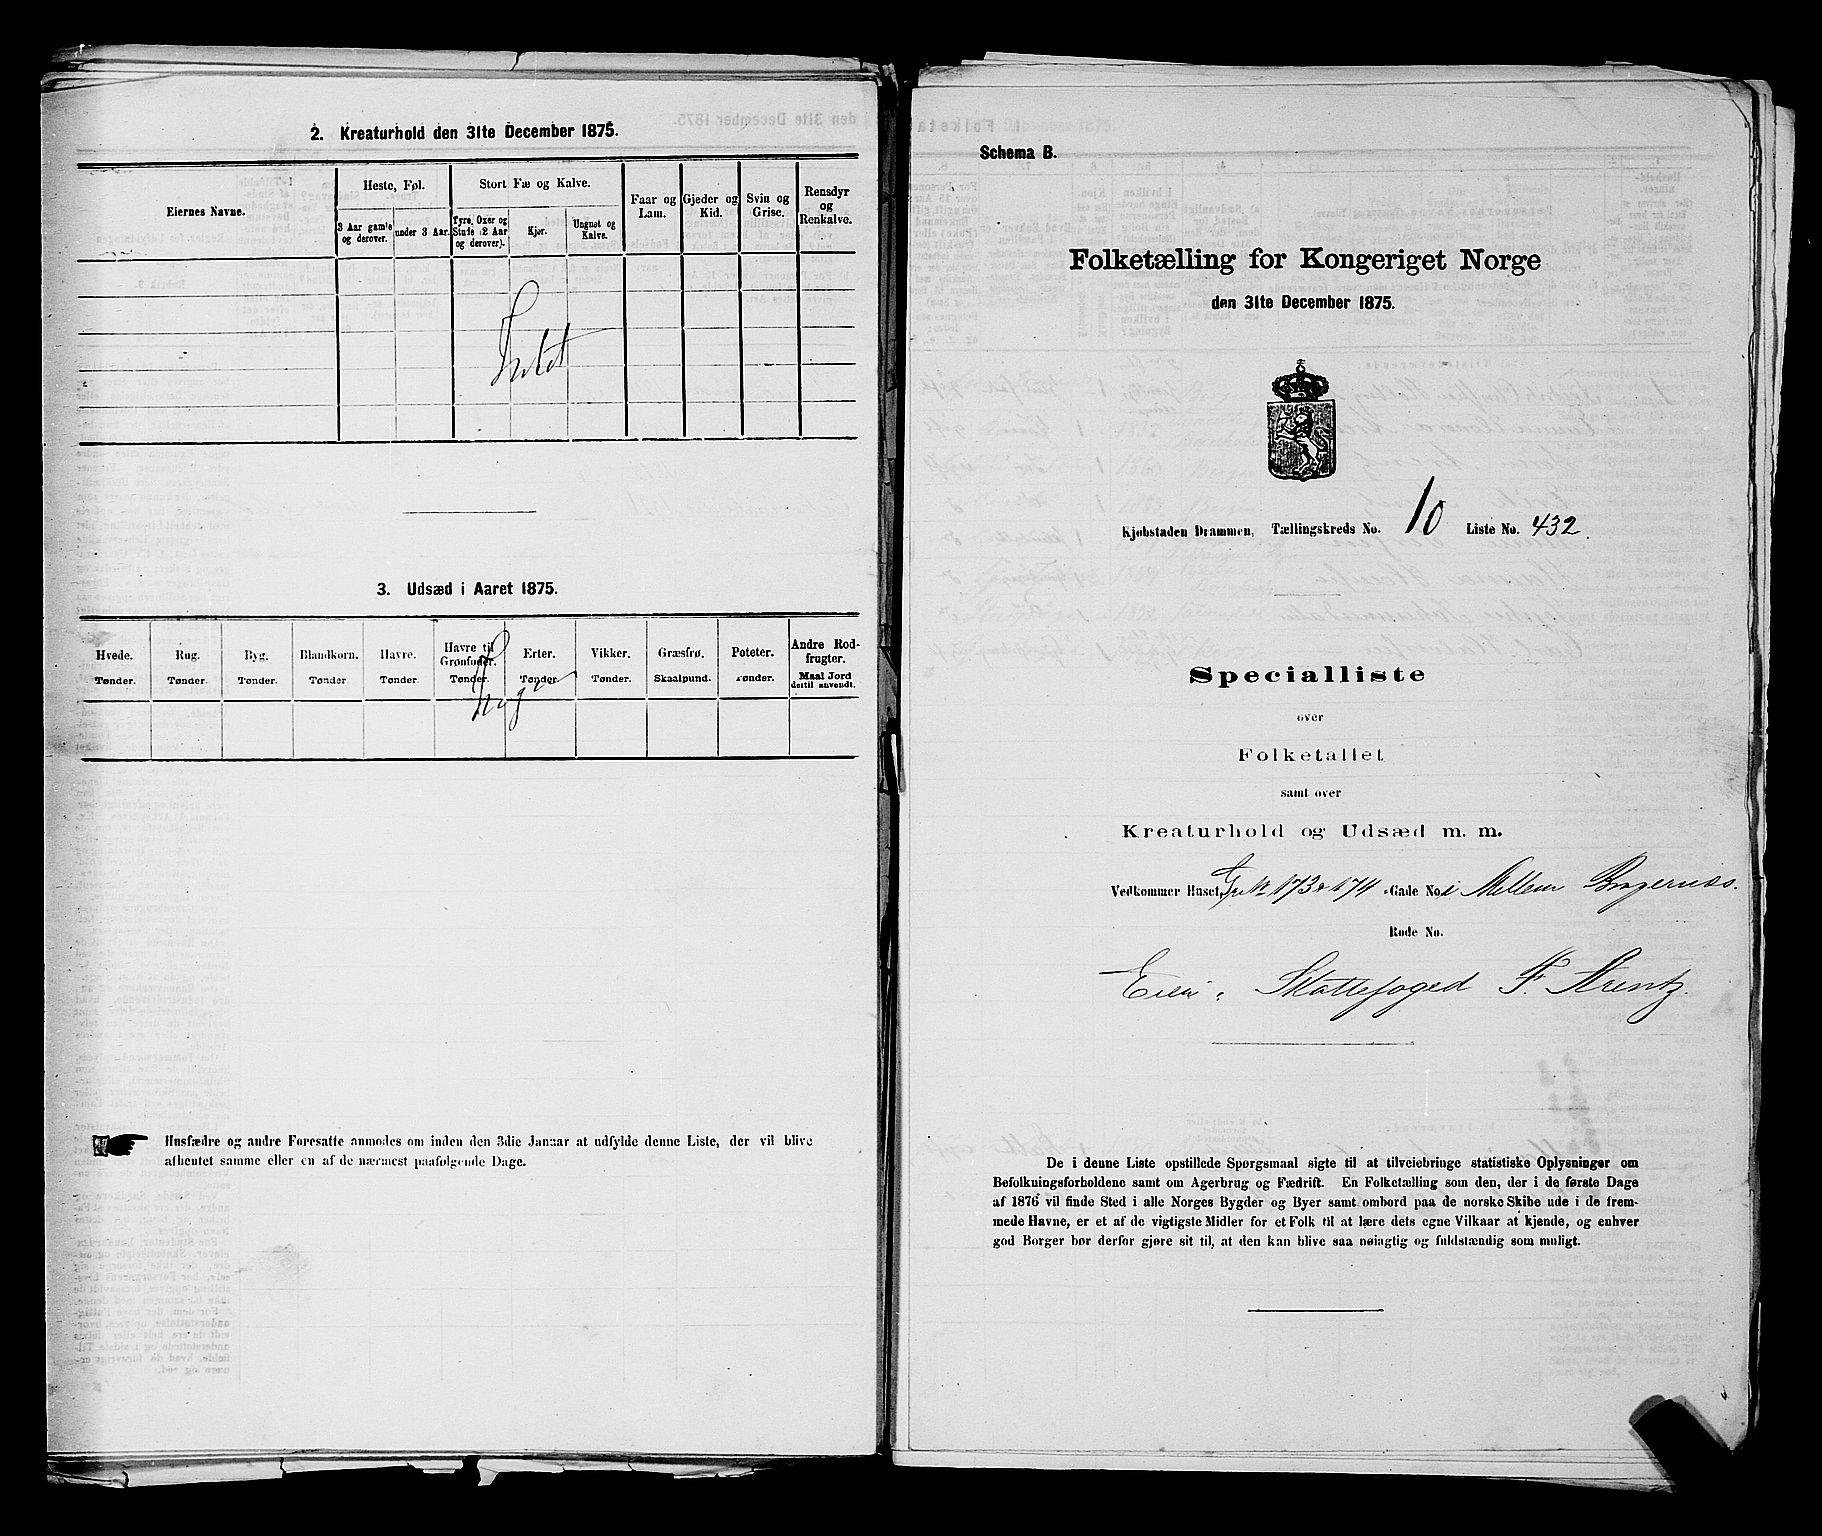 2. Kreaturhold den 31te December 1875.
Eiernes Navne.
Heste, Føl.
Stort Fæ og Kalve.
Faar og Lam.
Gjeder og Kid.
Svin og Grise.
Rensdyr og Renkalve.
3 Aar gamle og derover.
under 3 Aar.
Tyre, Oxer og Stude (2 Aar og derover).
Kjør.
Ungnøt og Kalve.
3. Udsæd i Aaret 1875.
Hvede. Rug. Byg. Blandkorn. Havre. Havre til Grønfoder. Erter. Vikker. Græsfrø. Poteter. Andre Rodfrugter.
Tønder. Tønder. Tønder. Tønder Tønder. Tønder. Tønder. Tønder. Skaalpund. Tønder. Maal Jord dertil anvendt.
Husfædre og andre Foresatte anmodes om inden den 3die Januar at udfylde denne Liste, der vil blive
afhentet samme eller en af de nærmest paafølgende Dage.
Schema B.
Folketælling for Kongeriget Norge
den 31te December 1875.
Kjøbstaden Drammen, Tællingskreds No. 10 Liste No. 432.
Specialliste
over
Folketallet
samt over
Kreaturhold og Udsæd m. m.
Vedkommer Huset, 173 & 174 Gade No. i Mellem Bragernæs.
Rode No.
Eier: Skattefoged F. Arentz.
De i denne Liste opstillede Spørgsmaal sigte til at tilveiebringe statistiske Oplysninger om
Befolkningsforholdene samt om Agerbrug og Fædrift. En Folketælling som den, der i de første Dage
af 1876 vil finde Sted i alle Norges Bygder og Byer samt ombord paa de norske Skibe ude i de frem-
mede Havne, er et af de vigtigste Midler for et Folk til at lære dets egne Vilkaar at kjende, og enhver
god Borger bør derfor gjøre sit til, at den kan blive saa nøiagtig og fuldstændig som muligt.